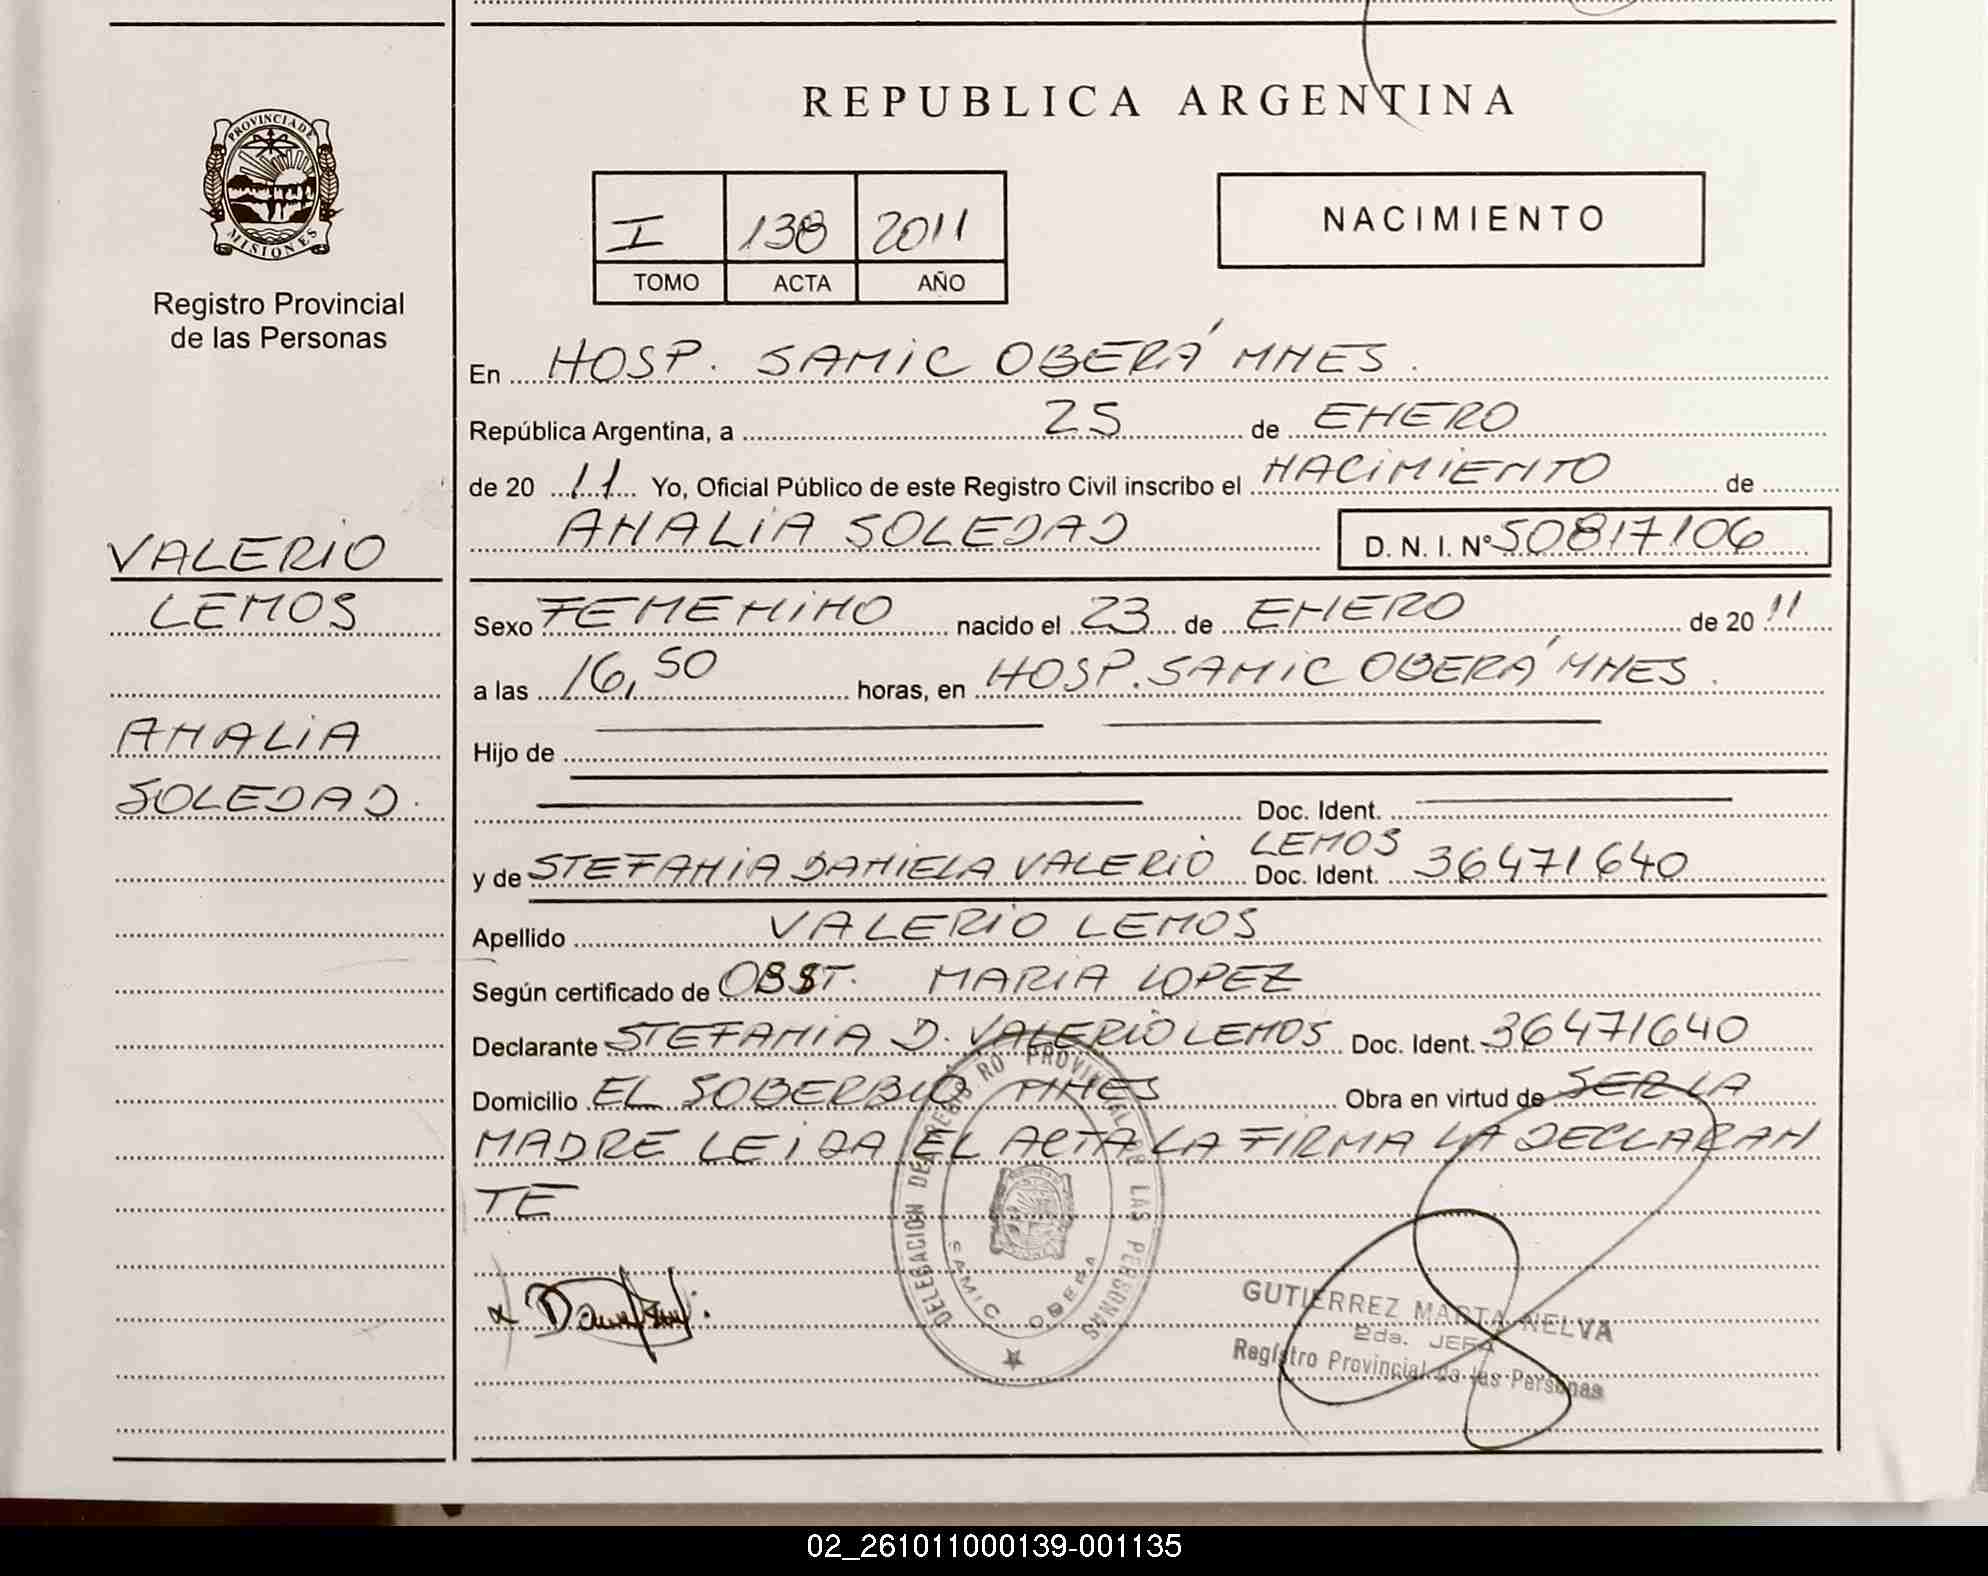 REPUBLICA ARGENTINA
PROVINCIA DE
MISIONES
Registro Provincial
de las Personas
I 138 2011
TOMO ACTA AÑO
NACIMIENTO
En HOSP. SAMIC OBERÁ MNES.
República Argentina, a 25 de ENERO
de 20 11 Yo, Oficial Público de este Registro Civil inscribo el NACIMIENTO de
ANALIA SOLEDAD D. N. I. N° 50817106
VALERIO
LEMOS
ANALIA
SOLEDAD.
Sexo FEMENINO nacido el 23 de ENERO de 20 11
a las 16,50 horas, en HOSP. SAMIC OBERÁ MNES.
Hijo de
Doc. Ident.
y de STEFANIA DANIELA VALERIO LEMOS Doc. Ident. 36471640
Apellido VALERIO LEMOS
Según certificado de OBST. MARIA LOPEZ
Declarante STEFANIA D. VALERIO LEMOS Doc. Ident. 36471640
Domicilio EL SOBERBIO MNES Obra en virtud de SER LA
MADRE LEIDA EL ACTA LA FIRMA LA DECLARAN
TE
DELEGACION DEL REGISTRO PROVINCIAL DE LAS PERSONAS
SAMIC OBERA
GUTIERREZ MARTA NELVA
2da. JEFA
Registro Provincial de las Personas
02_261011000139-001135